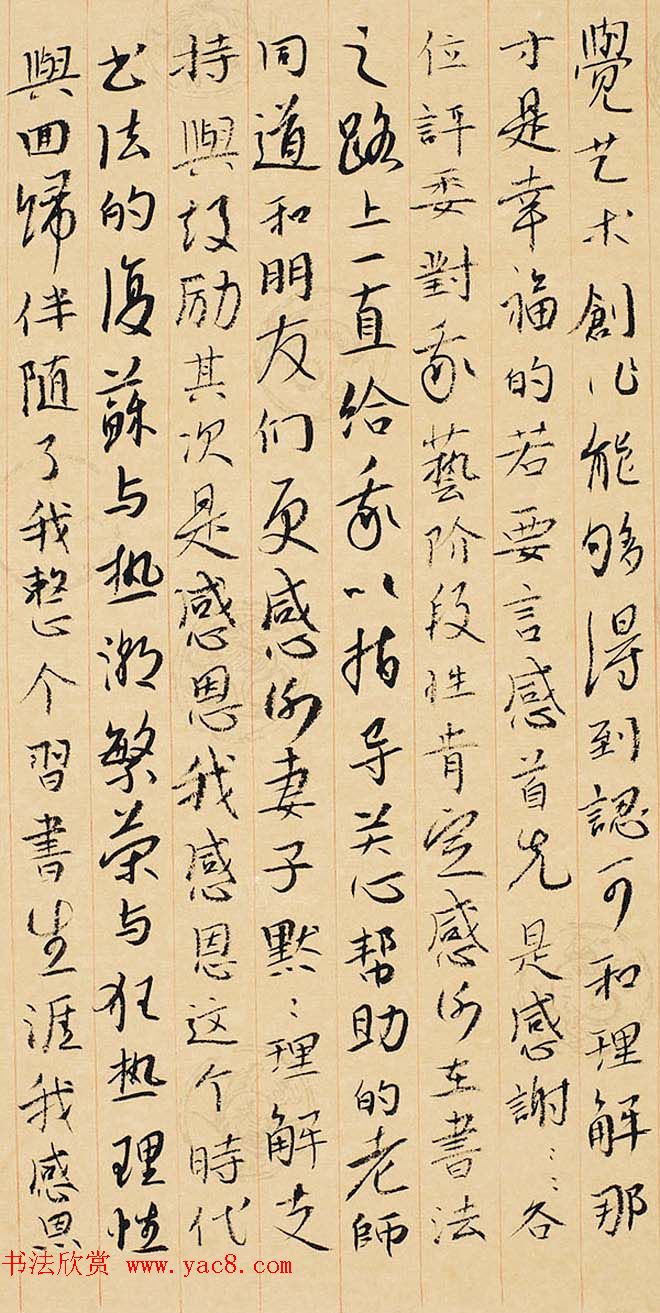 覺艺术創作能够得到認可和理解那
才是幸福的若要言感首先是感謝:感謝各
位評委對我藝阶段性肯定感谢在書法
之路上一直给我以指导关心帮助的老師
同道和朋友们更感谢妻子默:理解支
持與鼓励其次是感恩我感恩这个時代
书法的復蘇与热潮繁荣与狂热理性
與回歸伴随了我整个習書生涯我感恩
书法欣赏 www.yac8.com